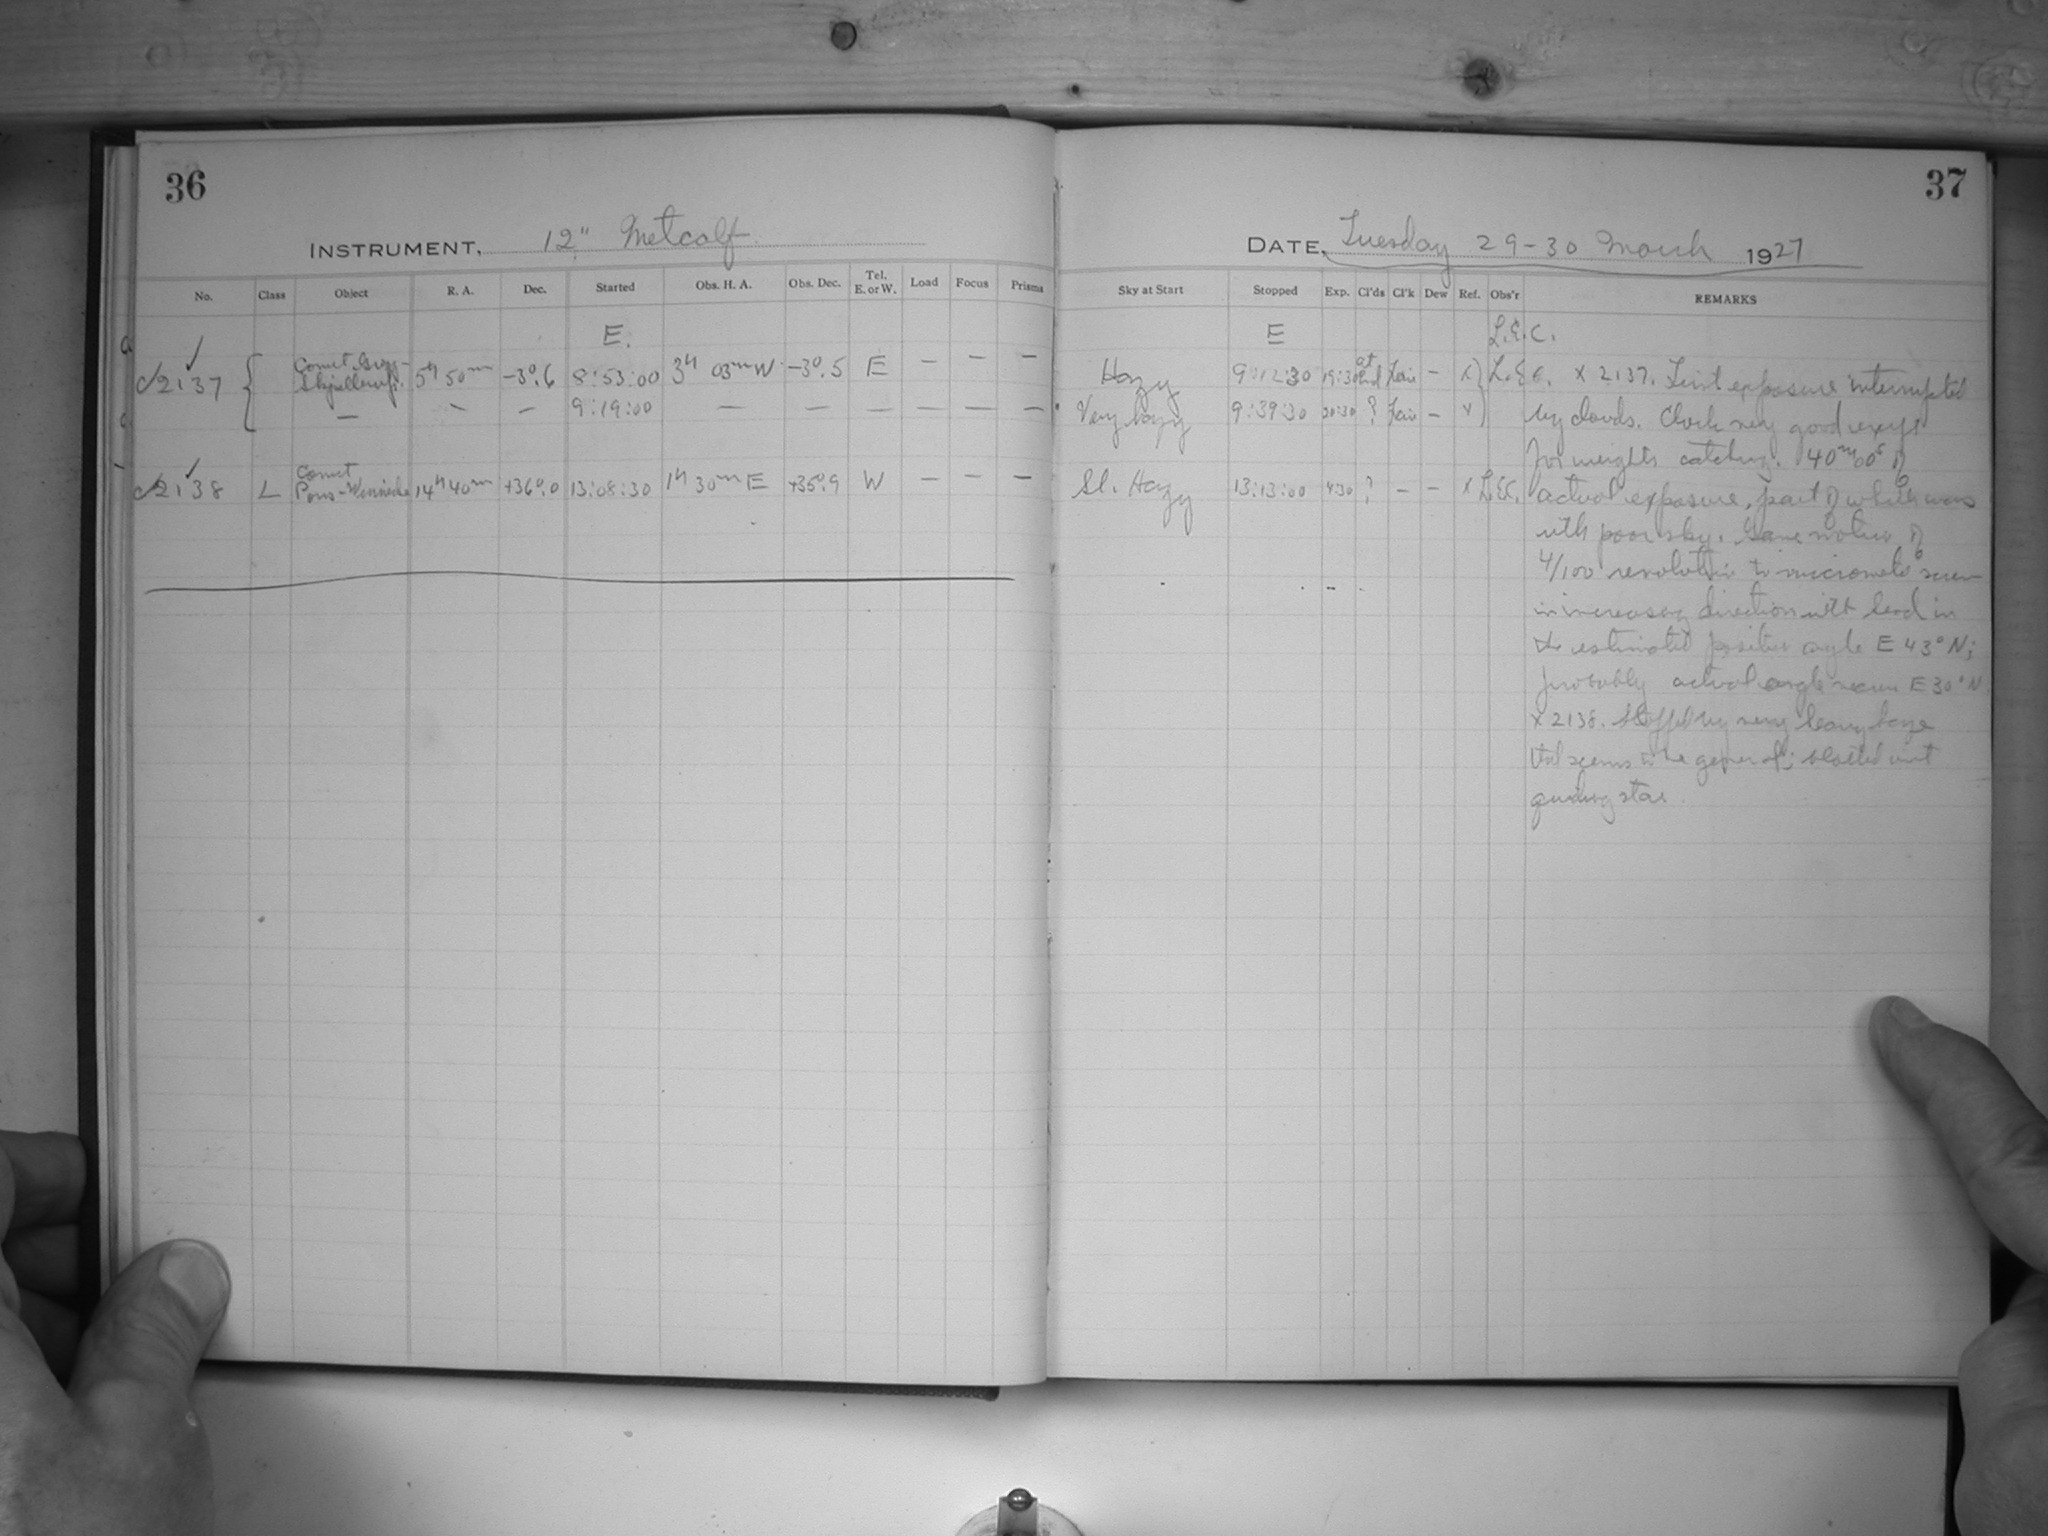 36
INSTRUMENT, 12" Metcalf
No. Class Object R. A. Dec. Started Obs. H. A. Obs. Dec. Tel. E. or W. Load Focus Prisms
E.
Comet Grigg-
2137 { Skjellerup. 5h 50m -3°.6 8:53:00 3h 03m W -3°.5 E — — —
— — — 9:19:00 — — — — — —
Comet
2138 L Pons-Winnecke 14h 40m +36°.0 13:08:30 1h 30m E +35°.9 W — — —
37
DATE, Tuesday 29-30 March 1927
Sky at Start Stopped Exp. Cl'ds Cl'k Dew Ref. Obs'r REMARKS
E L.E.C.
Hazy 9:12:30 19:30 at end Fair — x } L.E.C. x 2137. First exposure interrupted
Very hazy 9:39:30 20:30 ? Fair — x by clouds. Clock very good except
for weights catching. 40m00s of
Sl. Hazy 13:13:00 4:30 ? — — x L.E.C. actual exposure, part of which was
with poor sky. Gave motion of
4/100 revolution to micrometer screw
in increasing direction with head in
the estimated position angle E 43° N;
probably actual angle nearer E 30° N
x 2138. Stopped by very heavy haze
that seems to be general; blotted out
guiding star.